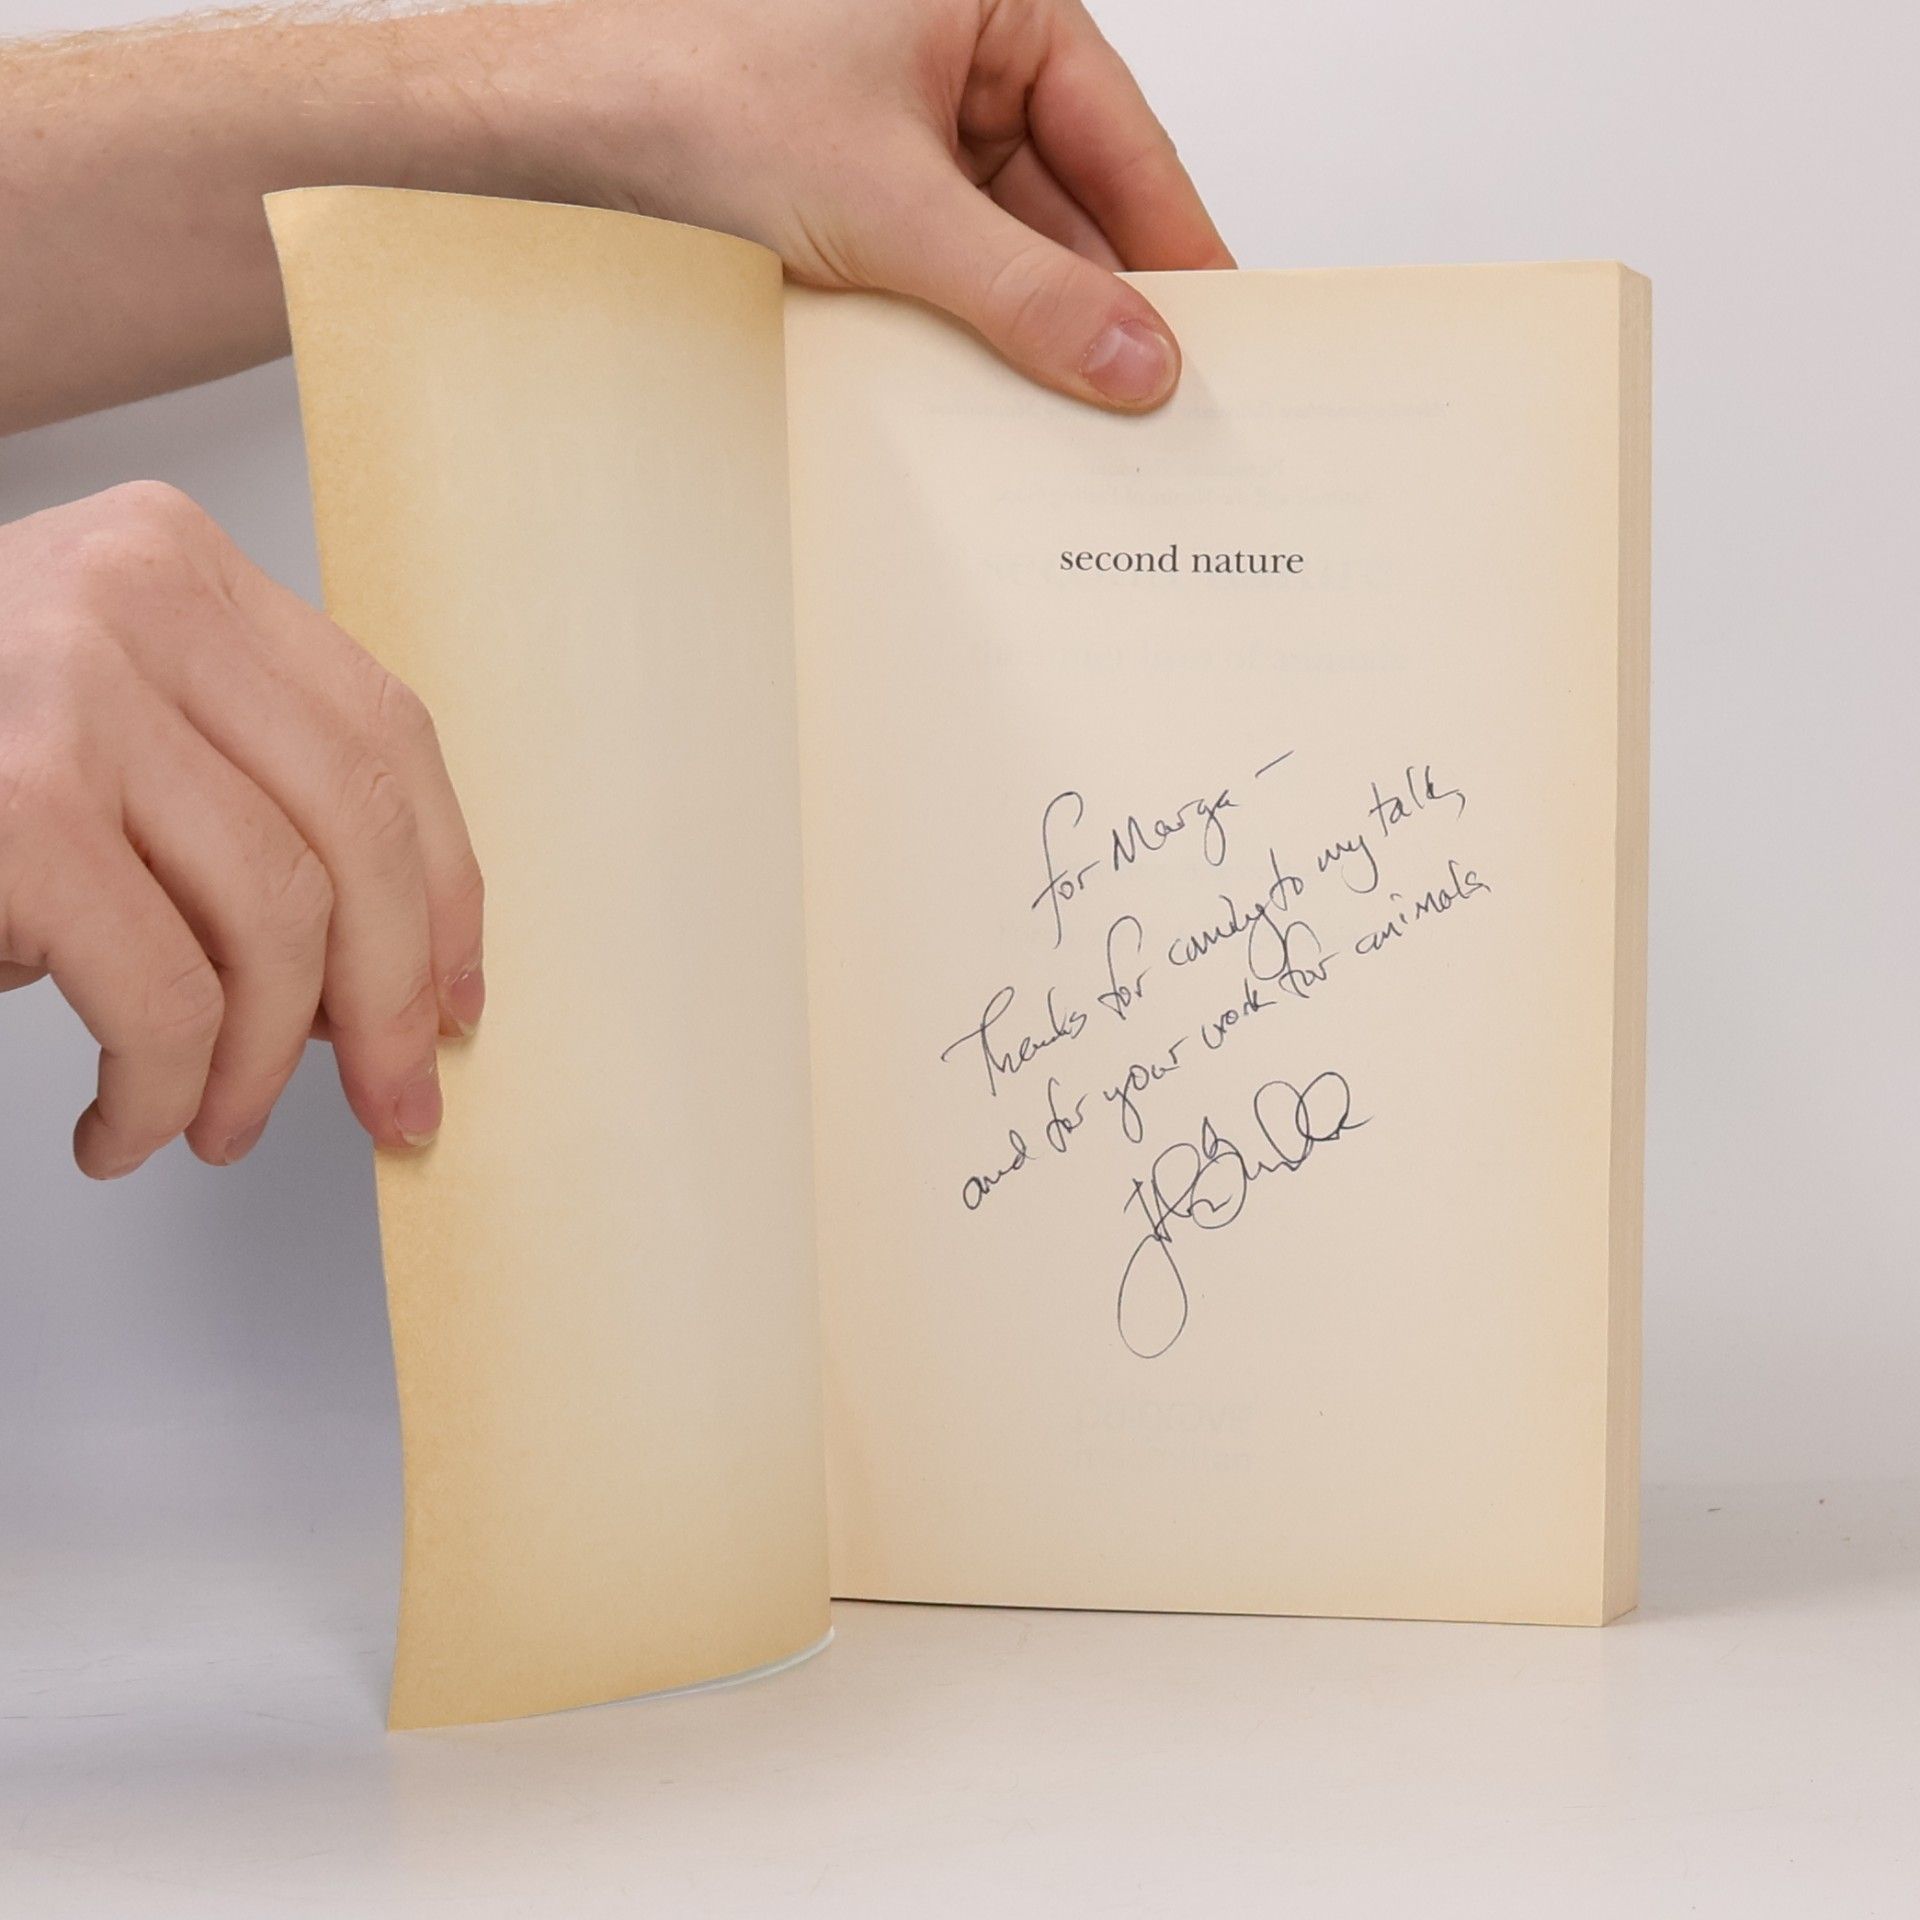 second nature
for Marga –
Thanks for coming to my talk,
and for your work for animals